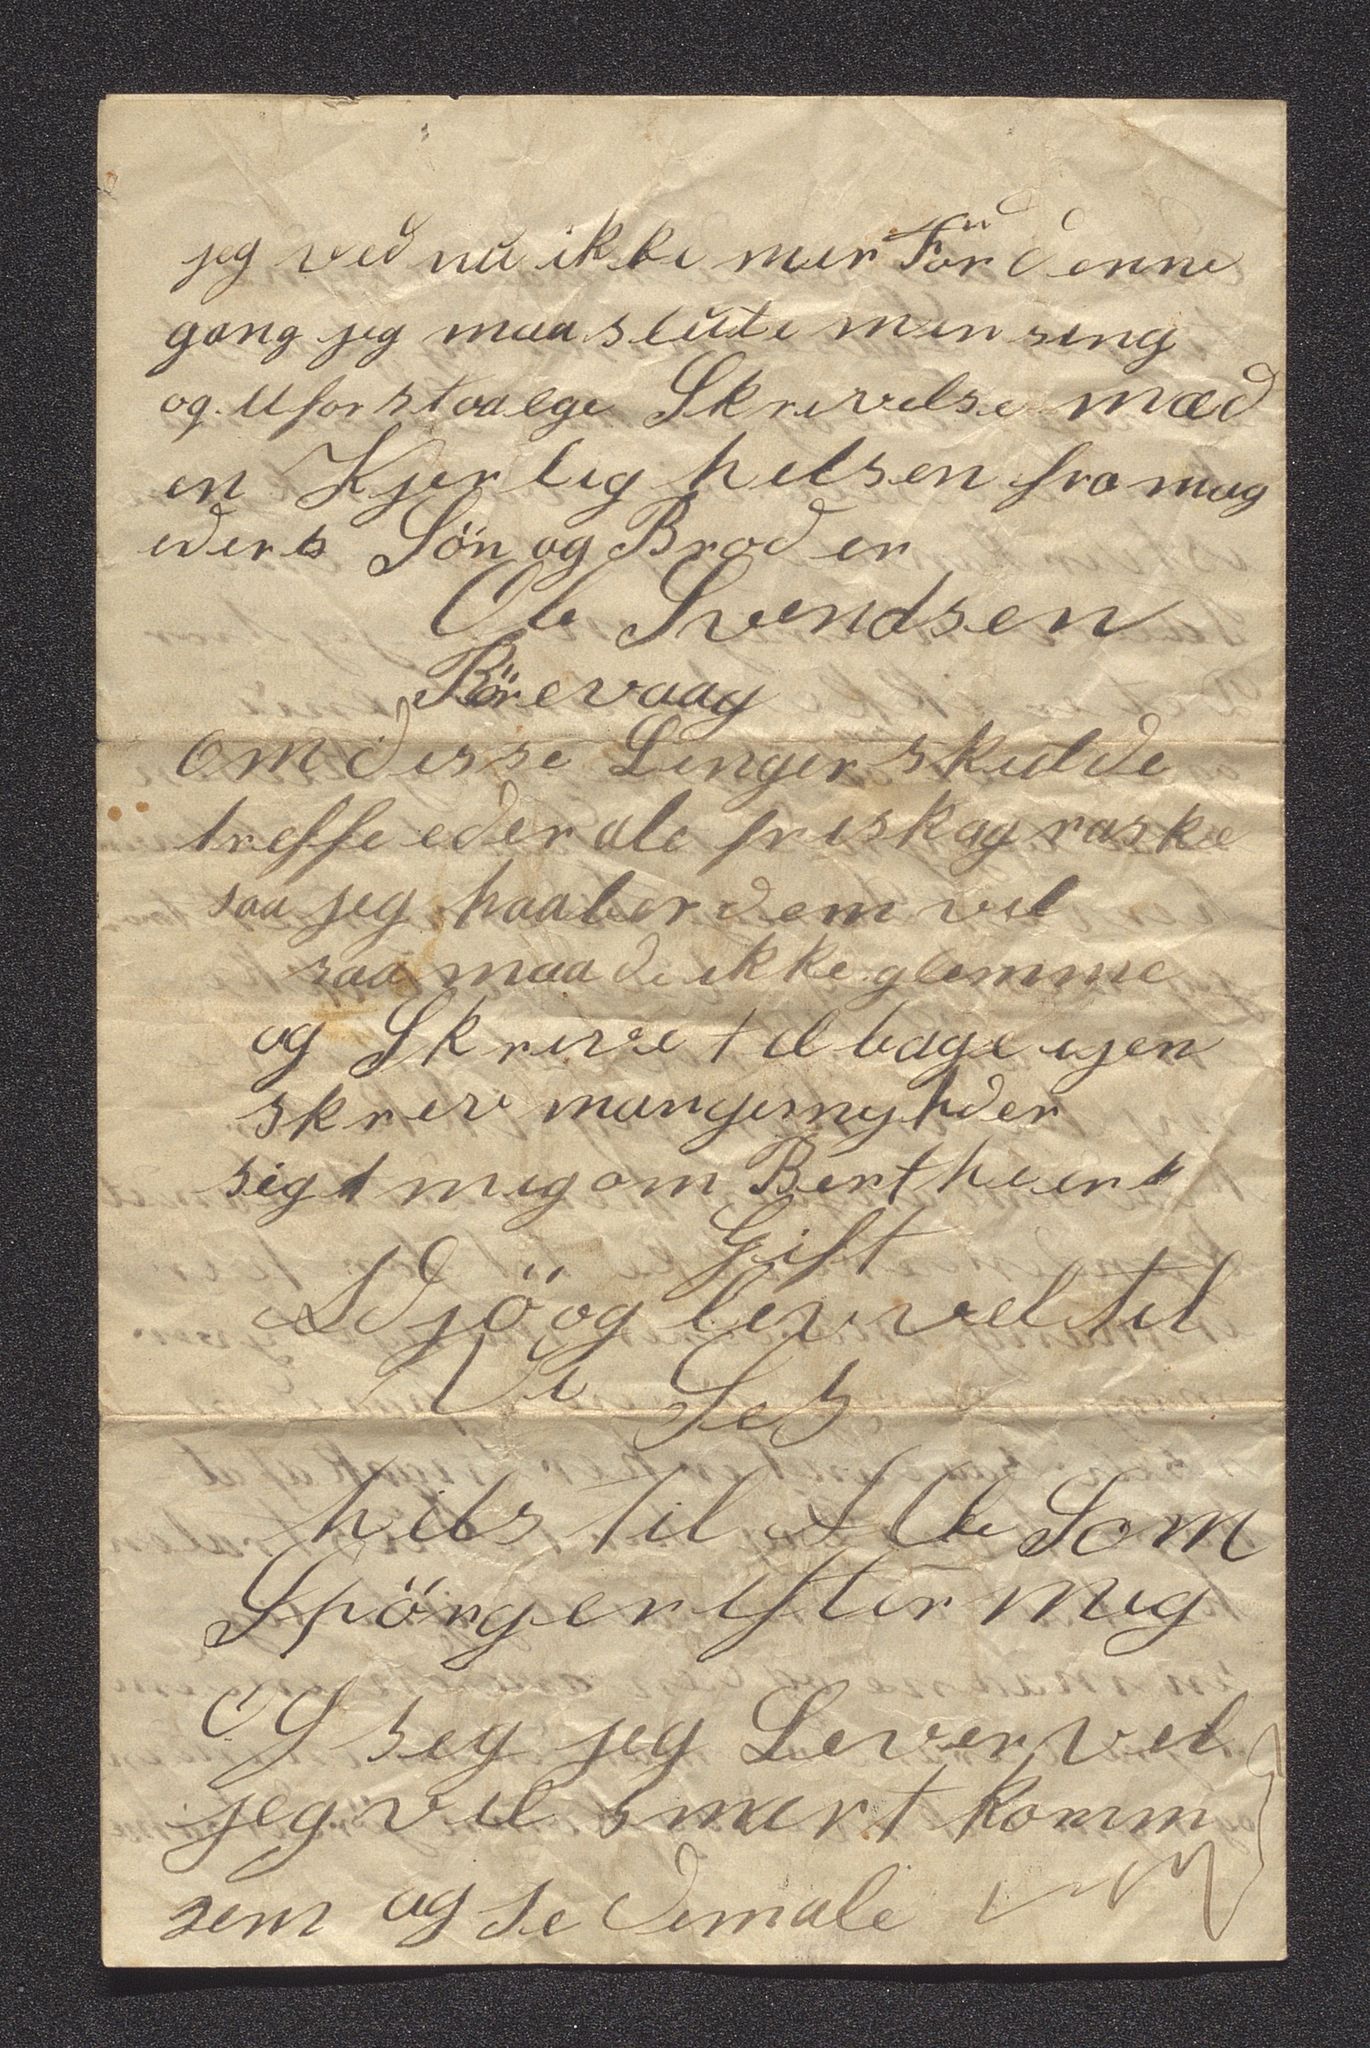 jeg ved nu ikke mer För denne
gang jeg maa slute min ring
og uforstaalge Skrivelse med
en Kjerlig helsen fra mig
eders Sön og Broder
Ole Svendsen
Rörevaag
om disse Linger skulde
treffe eder ale frisk og raske
saa jeg haaber dem vil
saa maa de ikke glemme
og Skrive tilbage igen
skrev mange nyhder
sigt mig om Berthe er
Gift
Adjö og lev vel til
Vi Ses
hils til Ale Som
Spörger efter mig
og seg jeg Lever vel
jeg vil snart komm
jem og se dem ale